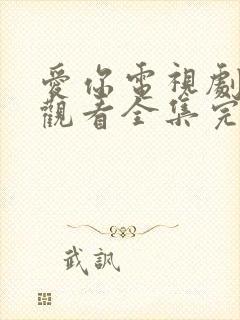 愛你電視劇
觀看全集完
武訊